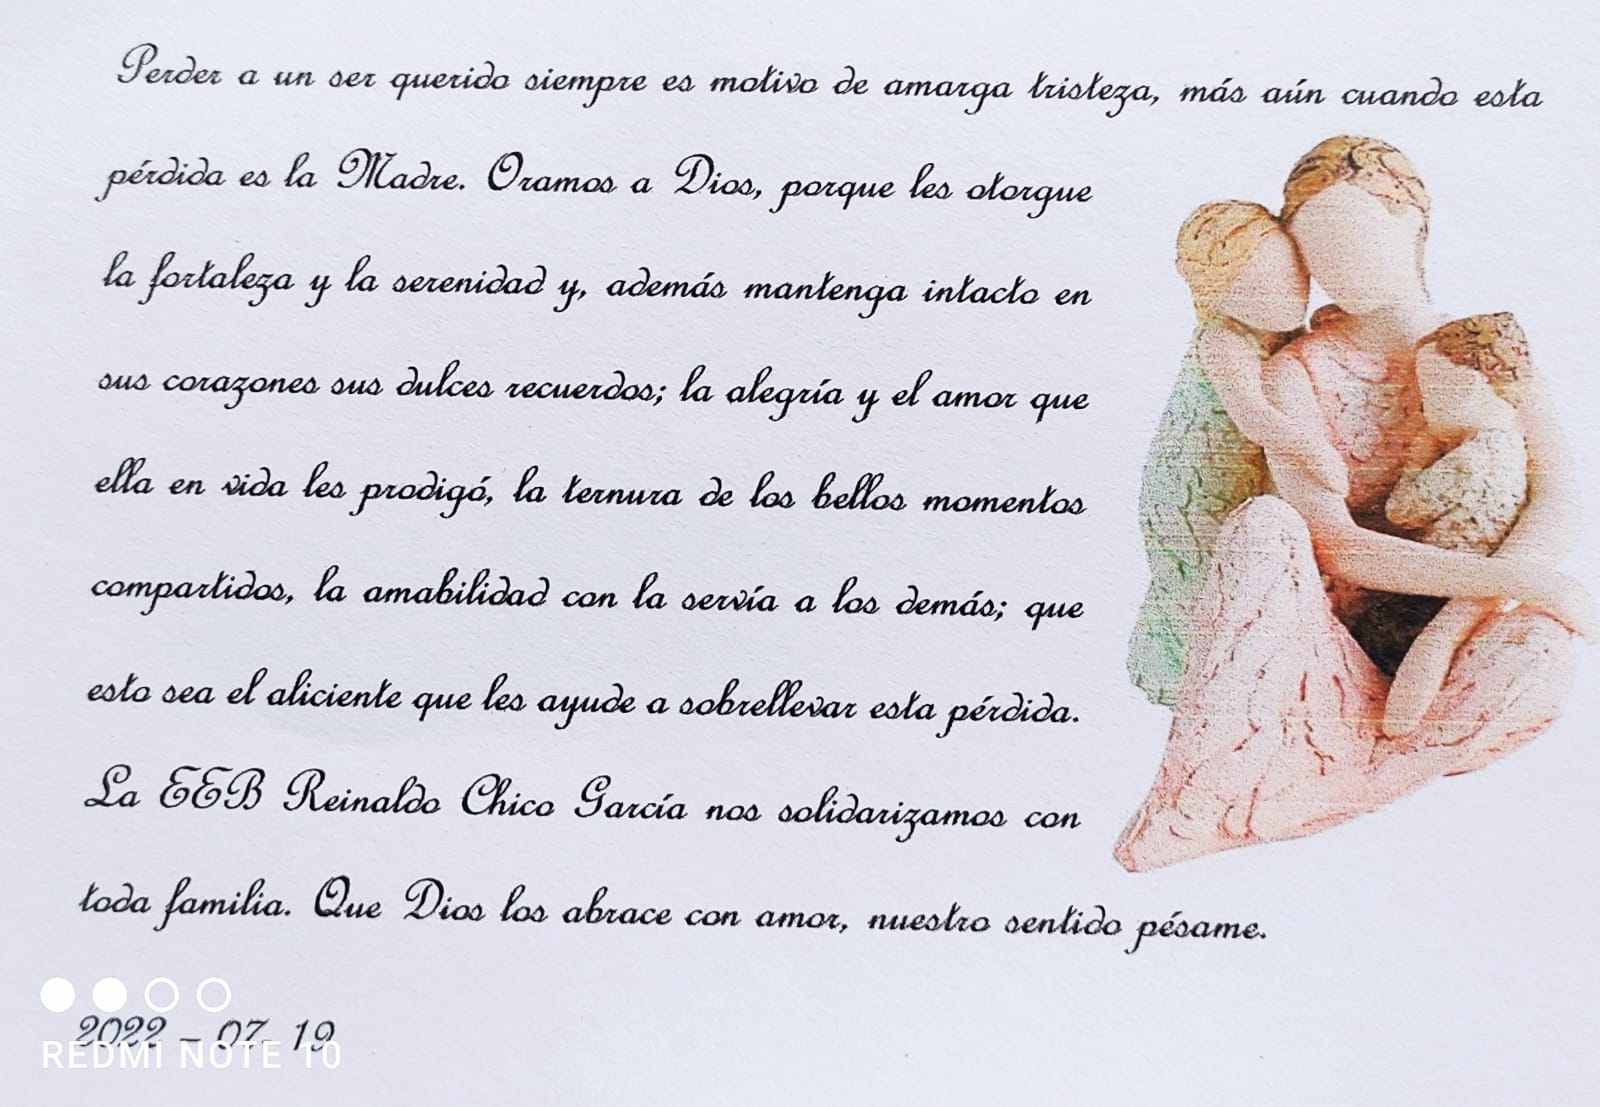 Perder a un ser querido siempre es motivo de amarga tristeza, más aún cuando esta
pérdida es la Madre. Oramos a Dios, porque les otorgue
la fortaleza y la serenidad y, además mantenga intacto en
sus corazones sus dulces recuerdos; la alegría y el amor que
ella en vida les prodigó, la ternura de los bellos momentos
compartidos, la amabilidad con la servía a los demás; que
esto sea el aliciente que les ayude a sobrellevar esta pérdida.
La EEB Reinaldo Chico García nos solidarizamos con
toda familia. Que Dios los abrace con amor, nuestro sentido pésame.
2022 - 07- 19
REDMI NOTE 10